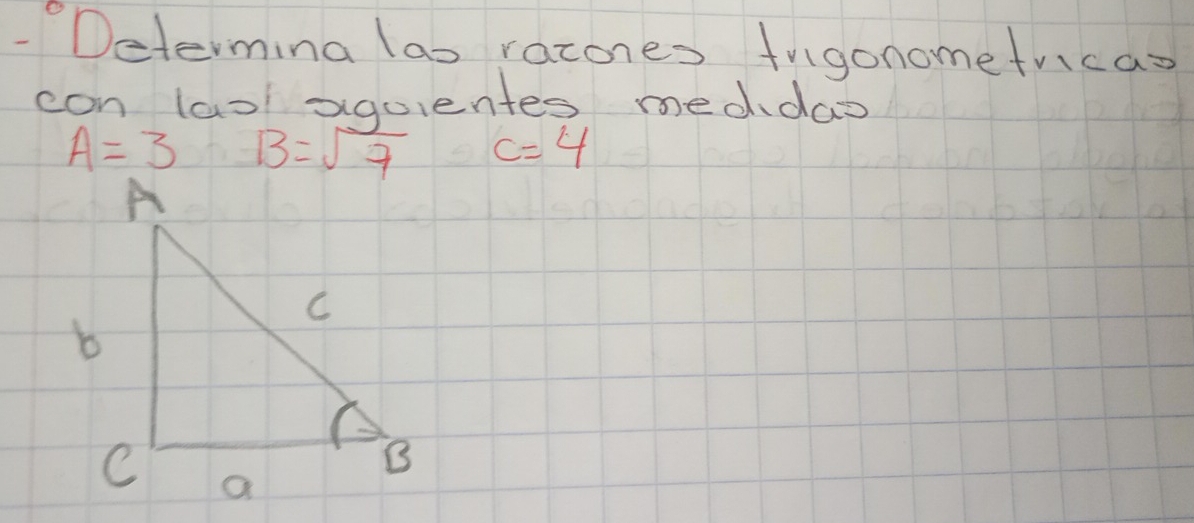 - Determina las razones trigonometricas
con las siguientes medidas
A = 3 B = √7 c = 4
A
c
b
C
a
B